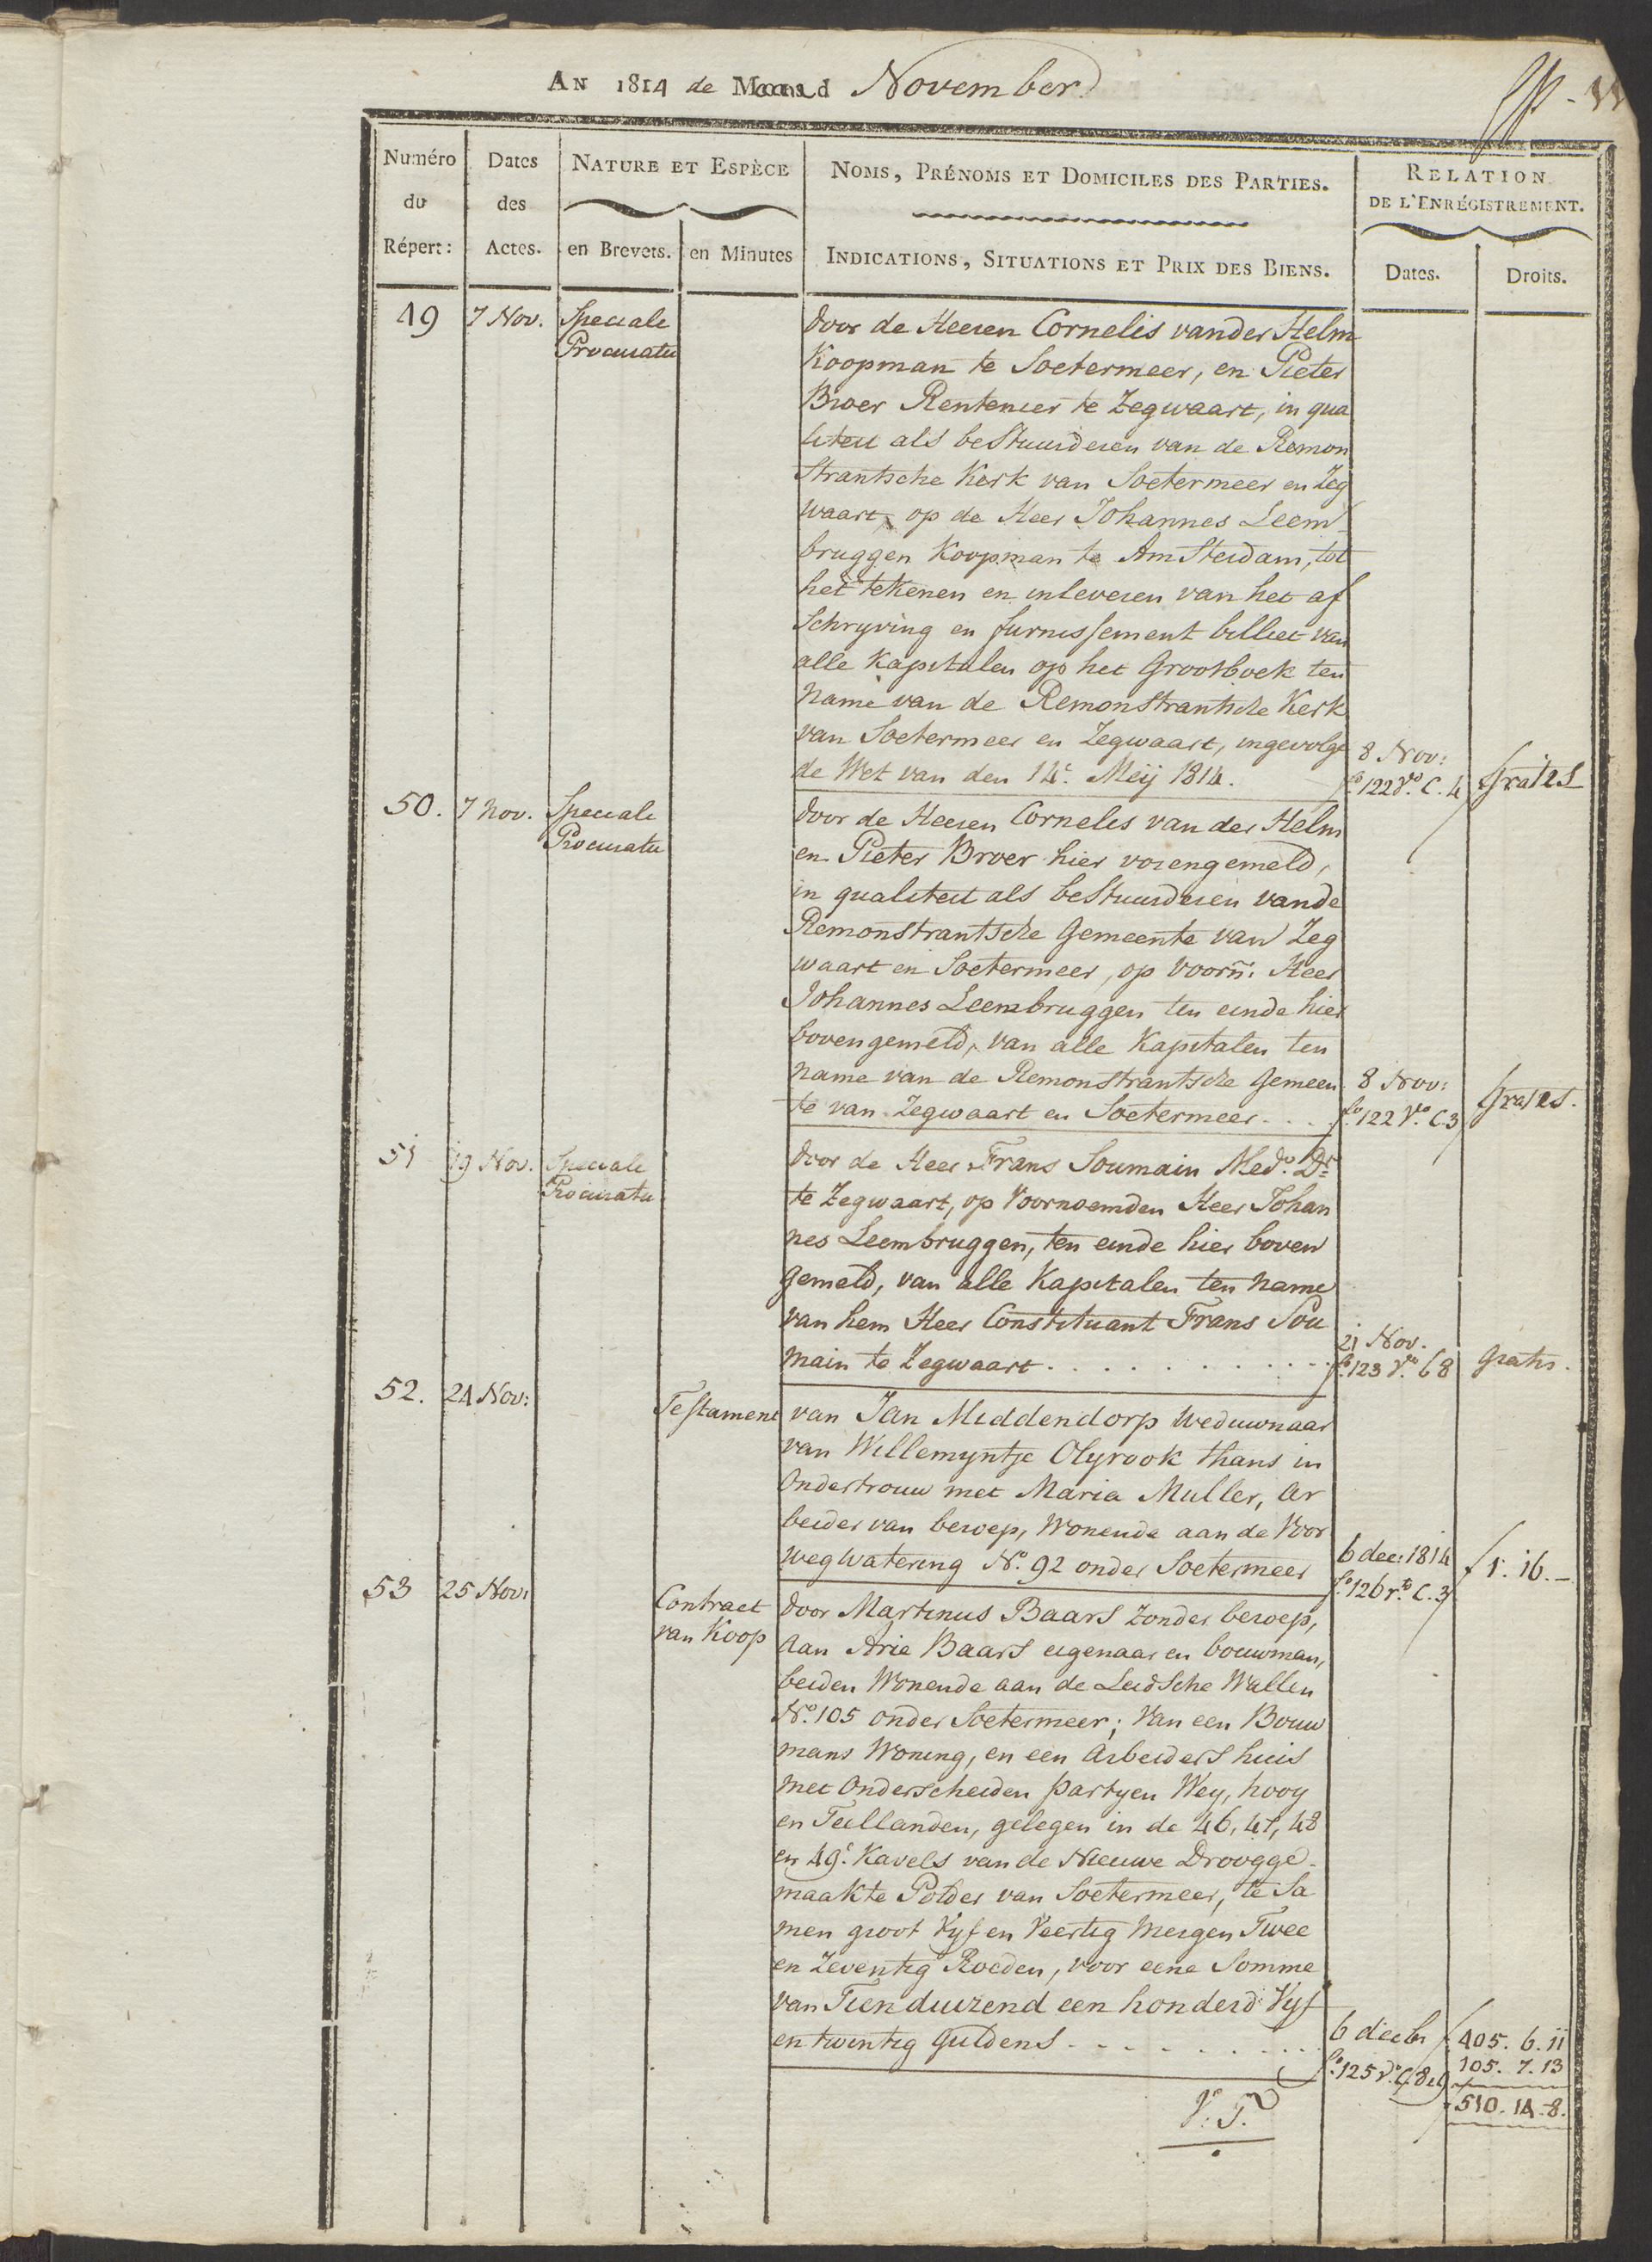 AN 1814 de Maand November
Numéro du Répert:
Dates des Actes.
NATURE ET ESPÈCE
en Brevets.
en Minutes
NOMS, PRÉNOMS ET DOMICILES DES PARTIES.
INDICATIONS, SITUATIONS ET PRIX DES BIENS.
RELATION
DE L'ENRÉGISTREMENT.
Dates.
Droits.
49 7 Nov. Speciale door de Heeren Cornelis vander Helm
Procuratie Koopman te Soetermeer, en Pieter
Broer Rentenier te Zegwaart, in qua
liteit als bestuurderen van de Remon
strantsche Kerk van Soetermeer en Zeg
waart, op de Heer Johannes Leem
bruggen Koopman te Amsterdam, tot
het tekenen en inleveren van het af
schryving en furnissement billiet van
alle Kapitalen op het Grootboek ten
name van de Remonstrantsche Kerk
van Soetermeer en Zegwaart, ingevolge 8 Nov:
de Wet van den 14e. Meij 1814. fo 122 Vo. C. 4 Gratis
50. 7 Nov. Speciale door de Heeren Cornelis van der Helm
Procuratie en Pieter Broer hier vorengemeld,
in qualiteit als bestuurderen vande
Remonstrantsche Gemeente van Zeg
waart en Soetermeer, op voorn: Heer
Johannes Leembruggen ten einde hier
bovengemeld, van alle Kapitalen ten
name van de Remonstrantsche Gemeen 8 Nov:
te van Zegwaart en Soetermeer . . . . fo. 122 Vo. C 3 Gratis.
51 19 Nov. Speciale door de Heer Frans Soumain Medo. Dr
Procuratie te Zegwaart, op Voornoemden Heer Johan
nes Leembruggen, ten einde hier boven
gemeld, van alle Kapitalen ten name
van hem Heer Constituant Frans Sou 21 Nov.
main te Zegwaart . . . . . . . . . . . fo. 123 Vo. C 8 gratis.
52. 24 Nov: Testament van Jan Middendorp Weduwnaar
van Willemyntje Olyrook thans in
Ondertrouw met Maria Muller, Ar
beider van beroep, Wonende aan de Voor
wegwatering No. 92 onder Soetermeer 6 dec: 1814 f 1. 16. –
fo. 126 ro. C. 3
53 25 Nov: Contract door Martinus Baars zonder beroep,
van Koop aan Arie Baars eigenaar en bouwman,
beiden Wonende aan de Leidsche Wallen
No. 105 onder Soetermeer; Van een Bouw
mans Woning, en een Arbeiders huis
met Onderscheiden partyen Wey, hooy
en Teellanden, gelegen in de 46, 47, 48
en 49e. Kavels van de Nieuwe Droogge
maakte Polder van Soetermeer, te Sa
men groot Vyf en Veertig Mergen Twee
en Zeventig Roeden, voor eene Somme
van Tienduizend een honderd Vyf
en twintig Guldens . . . . . . . . . 6 decbr f 405. 6. 11
fo. 125 Vo. C 8 e 9 105. 7. 13
f 510. 14. 8.
V. T.